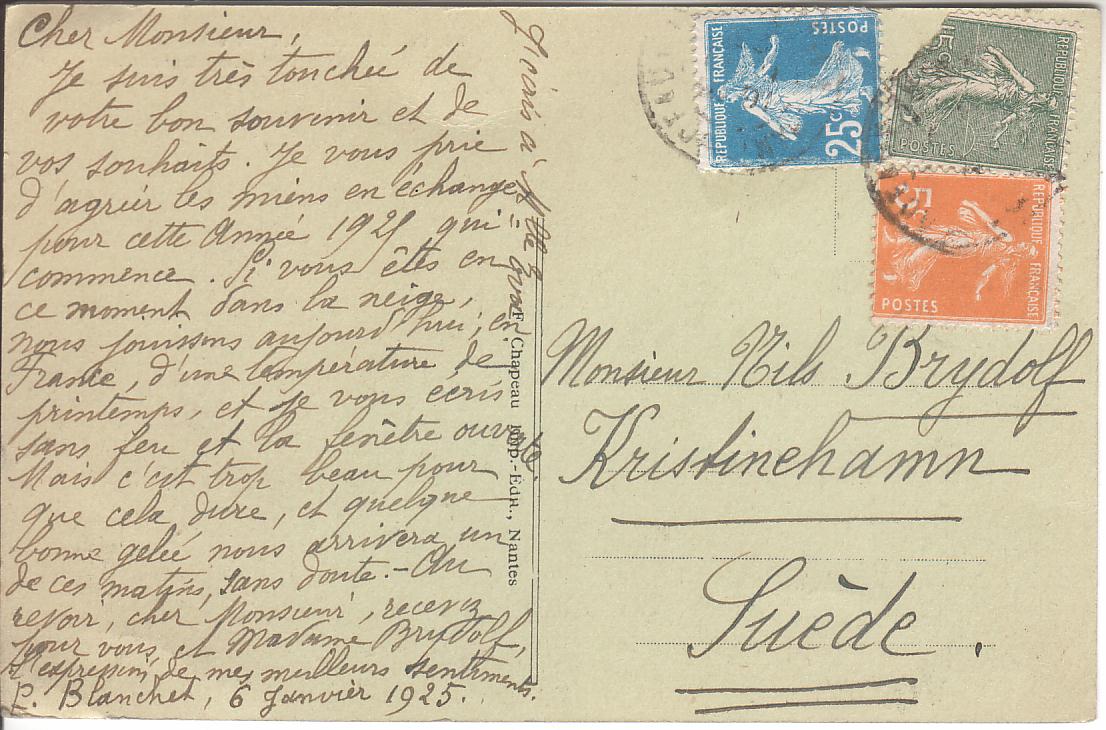 Cher Monsieur,
Je suis très touchée de
votre bon souvenir et de
vos souhaits. Je vous prie
d'agréer les miens en échange
pour cette Année 1925 qui
commence. Si vous êtes en
ce moment dans la neige,
nous jouissons aujourd'hui, en
France, d'une température de
printemps, et je vous écris
sans feu et la fenêtre ouverte.
Mais c'est trop beau pour
que cela dure, et quelque
bonne gelée nous arrivera un
de ces matins, sans doute. - Au
revoir, cher Monsieur, recevez
pour vous et Madame Brydolf,
l'expression de mes meilleurs sentiments.
P. Blanchet, 6 Janvier 1925.
à Mlle
F. Chapeau Imp.-Édit., Nantes
REPUBLIQUE FRANÇAISE
POSTES
25c
15c
REPUBLIQUE FRANÇAISE
POSTES
5c
REPUBLIQUE FRANÇAISE
POSTES
Monsieur Nils Brydolf
Kristinehamn
Suède.